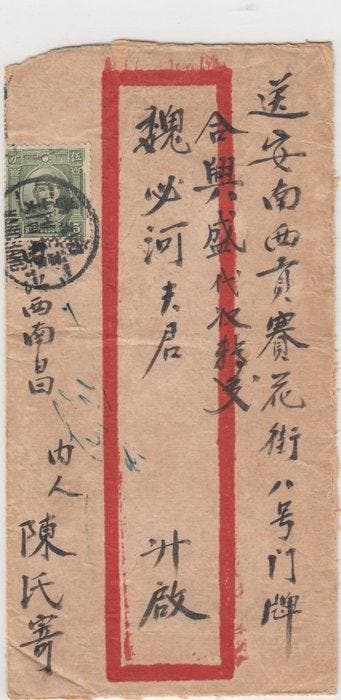 送安南西貢賽花街八号门牌
合興盛代收轉交
魏必河夫君 升啟
西南昌 内人 陳氏寄
伍 分
5